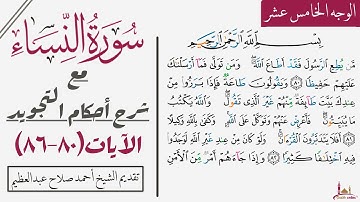 الوجه الخامس عشر
سُورَةُ النِّسَاءِ
مع
شرح أحكام التجويد
الآيات (٨٠-٨٦)
تقديم الشيخ أحمد صلاح عبدالعظيم
بِسْمِ اللَّهِ الرَّحْمَٰنِ الرَّحِيمِ
مَّن يُطِعِ ٱلرَّسُولَ فَقَدْ أَطَاعَ ٱللَّهَ ۖ وَمَن تَوَلَّىٰ فَمَآ أَرْسَلْنَٰكَ
عَلَيْهِمْ حَفِيظًا ٨٠ وَيَقُولُونَ طَاعَةٌ فَإِذَا بَرَزُوا۟ مِنْ
عِندِكَ بَيَّتَ طَآئِفَةٌ مِّنْهُمْ غَيْرَ ٱلَّذِى تَقُولُ ۖ وَٱللَّهُ يَكْتُبُ
مَا يُبَيِّتُونَ ۖ فَأَعْرِضْ عَنْهُمْ وَتَوَكَّلْ عَلَى ٱللَّهِ ۚ وَكَفَىٰ بِٱللَّهِ وَكِيلًا
٨١ أَفَلَا يَتَدَبَّرُونَ ٱلْقُرْءَانَ ۚ وَلَوْ كَانَ مِنْ عِندِ غَيْرِ ٱللَّهِ لَوَجَدُوا۟
فِيهِ ٱخْتِلَٰفًا كَثِيرًا ٨٢ وَإِذَا جَآءَهُمْ أَمْرٌ مِّنَ ٱلْأَمْنِ